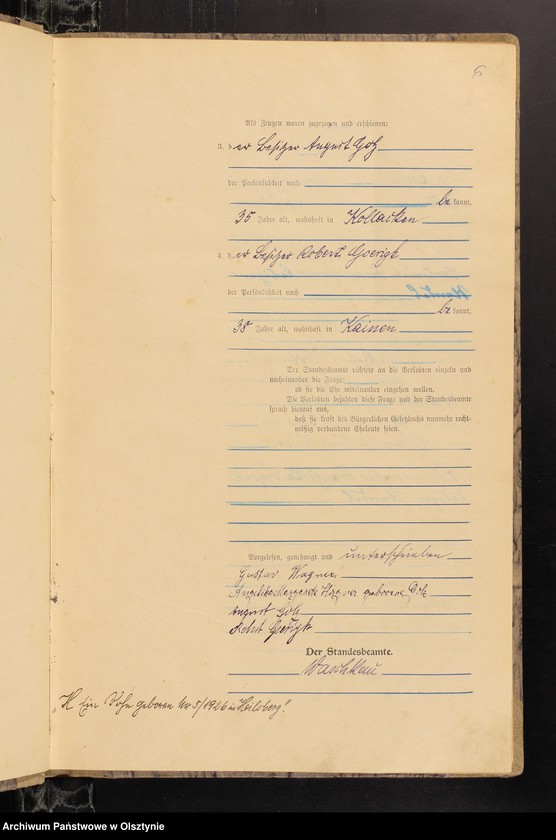 6
Als Zeugen waren zugezogen und erschienen:
3. der Besitzer August Golz
der Persönlichkeit nach
be kannt,
35 Jahre alt, wohnhaft in Kollacken
4. der Besitzer Robert Goerigk
der Persönlichkeit nach
be kannt,
38 Jahre alt, wohnhaft in Kainen
Der Standesbeamte richtete an die Verlobten einzeln und
nacheinander die Frage:
ob sie die Ehe miteinander eingehen wollen.
Die Verlobten bejahten diese Frage und der Standesbeamte
sprach hierauf aus,
daß sie kraft des Bürgerlichen Gesetzbuchs nunmehr recht-
mäßig verbundene Eheleute seien.
Vorgelesen, genehmigt und unterschrieben
Gustav Wagner
Wagner geborene Golz
August Golz
Robert Goerigk
Der Standesbeamte.
Waschkau
Ein Sohn geboren Nr 5/1926 in Heilsberg!
Archiwum Państwowe w Olsztynie